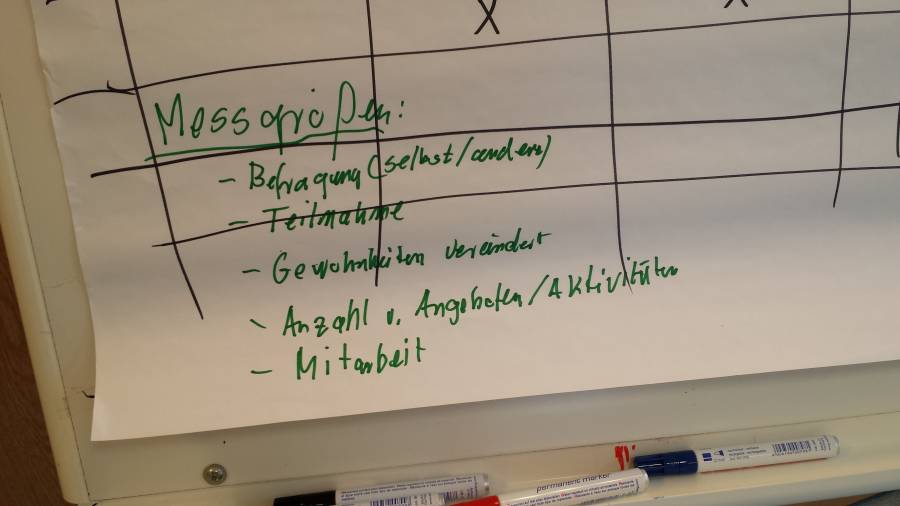 X
X
Messgrößen:
- Befragung (selbst/anders)
- Teilnahme
- Gewohnheiten verändert
- Anzahl v. Angeboten/Aktivitäten
- Mitarbeit
permanent marker